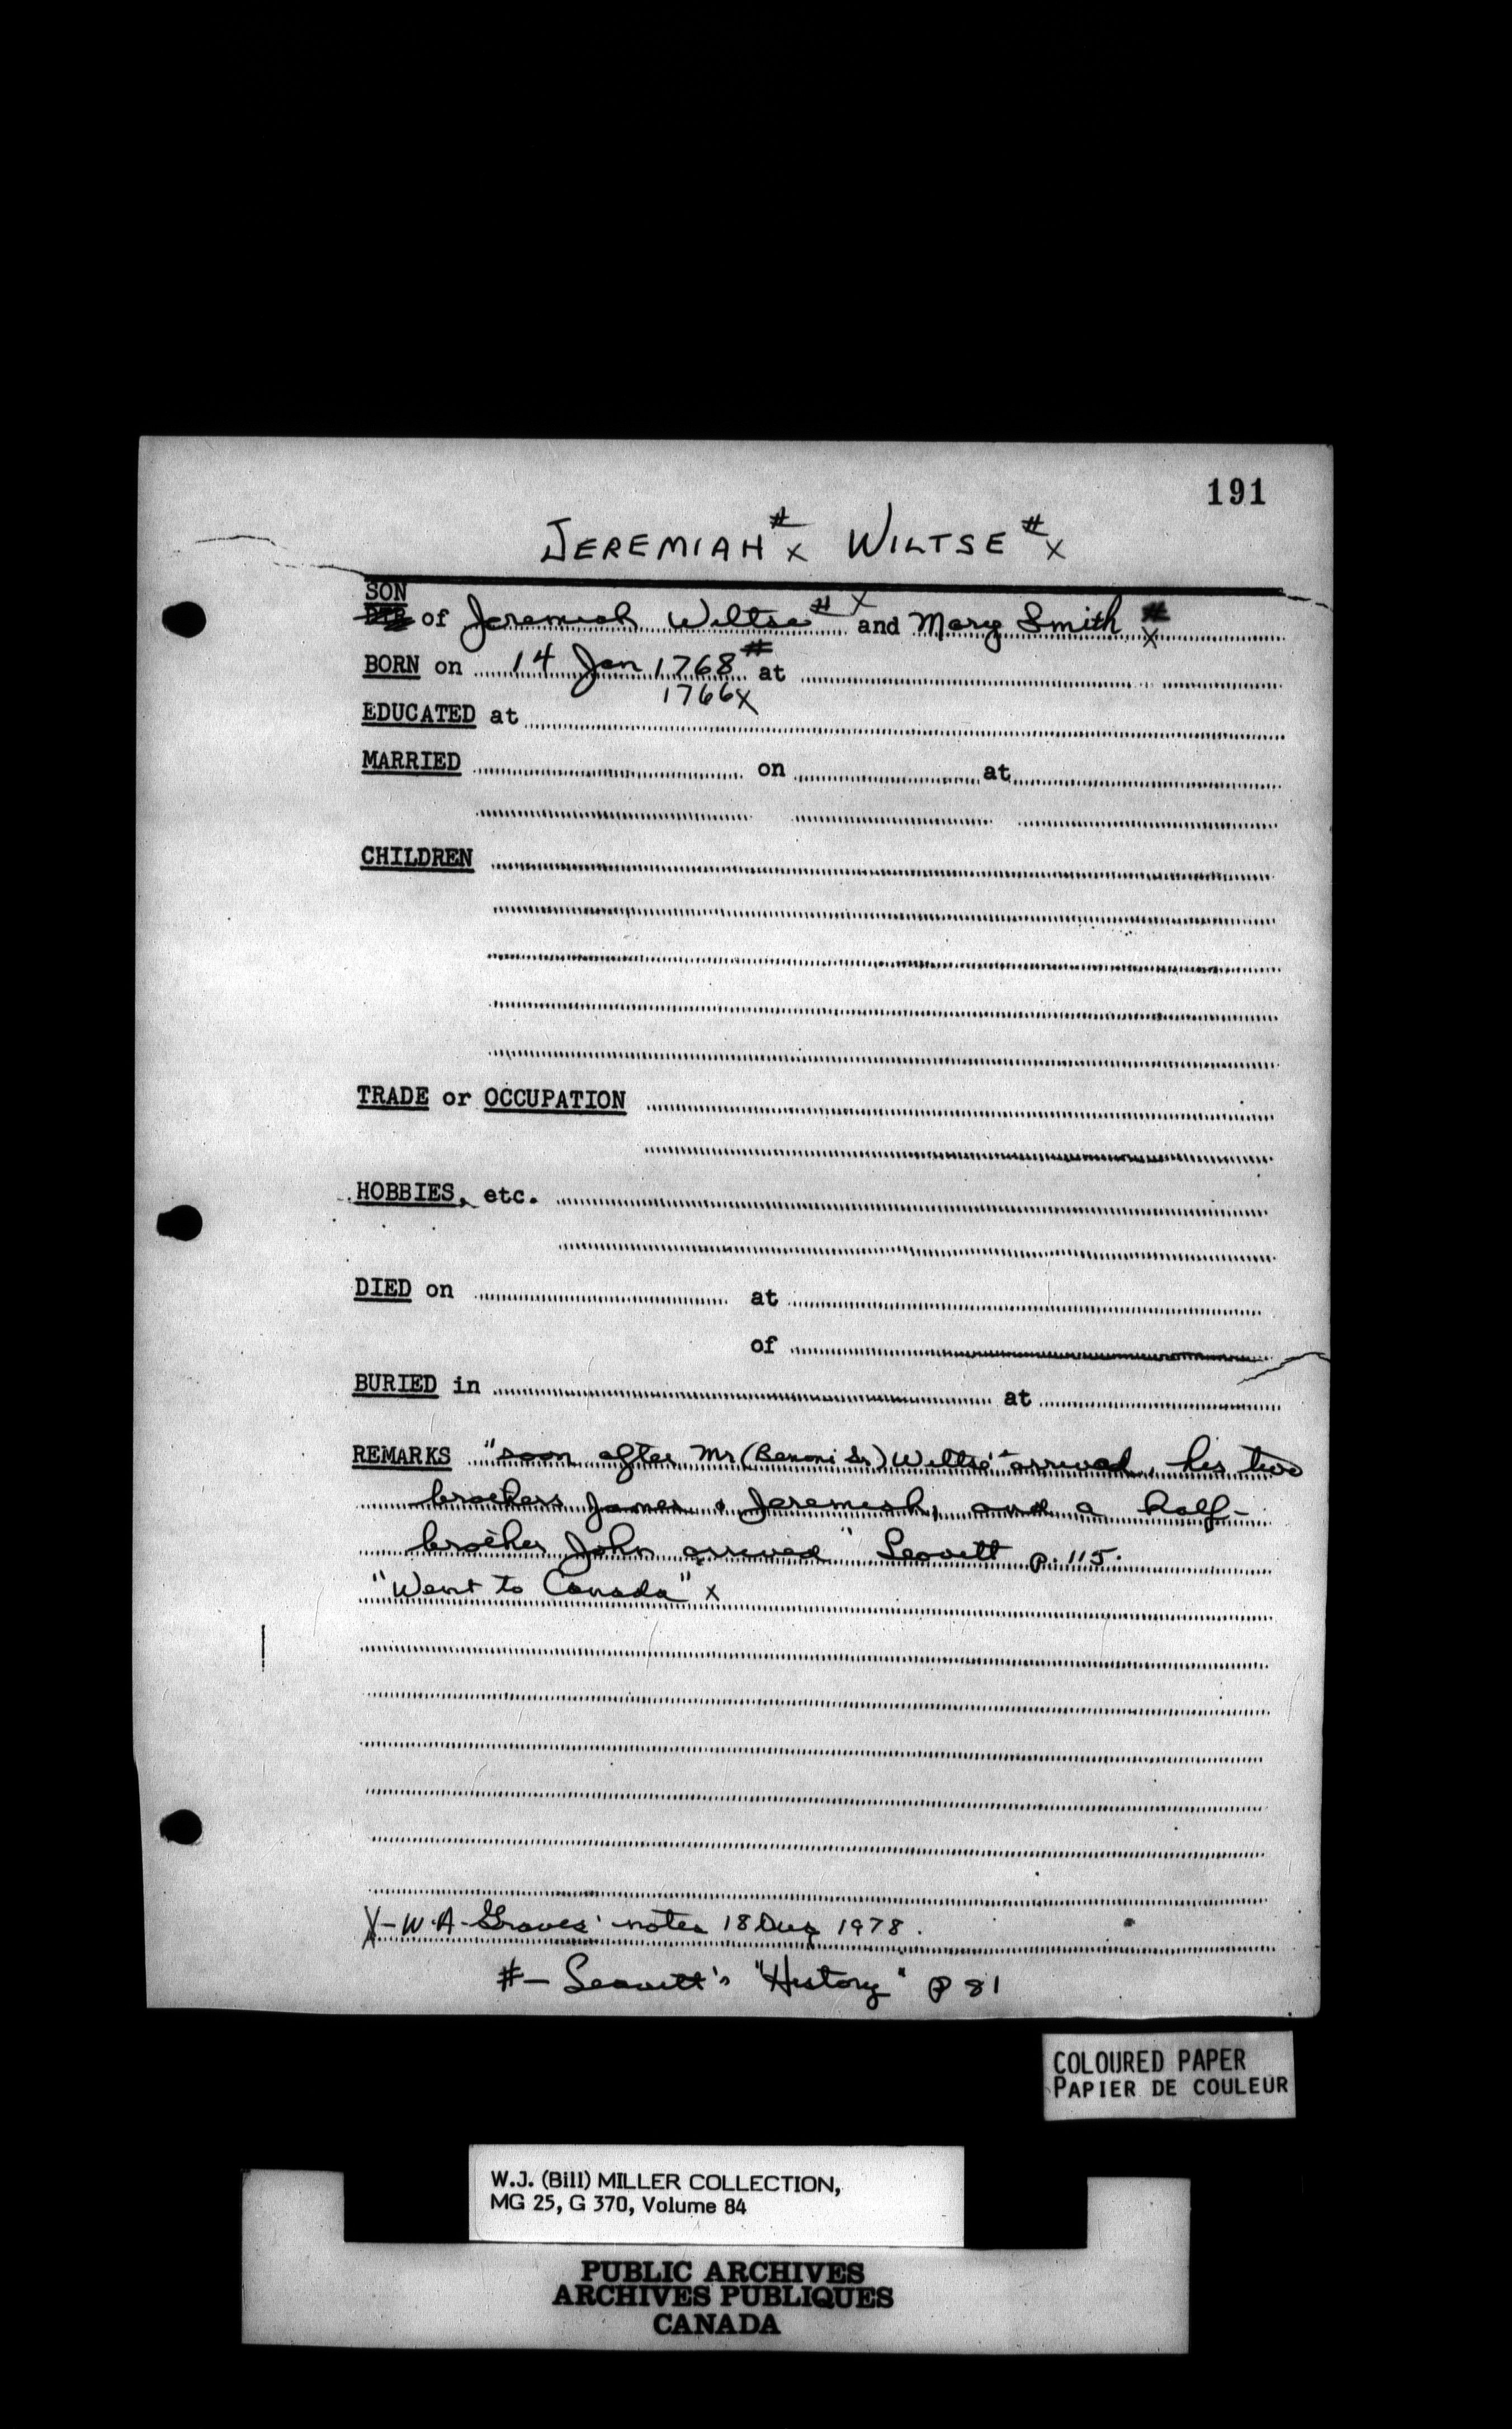 191
JEREMIAH # x WILTSE # x
SON
DTR of Jeremiah Wiltse # x and Mary Smith # x
BORN on 14 Jan 1768 # at
1766 x
EDUCATED at
MARRIED on at
CHILDREN
TRADE or OCCUPATION
HOBBIES, etc.
DIED on at
of
BURIED in at
REMARKS "soon after Mr (Benoni Sr) Wiltse arrived, his two
brothers James & Jeremiah, and a half-
brother John arrived" Leavitt p. 115.
"Went to Canada" x
X - W.A. Graves' notes 18 Aug 1978.
# - Leavitt's "History" p 81
COLOURED PAPER
PAPIER DE COULEUR
W.J. (Bill) MILLER COLLECTION,
MG 25, G 370, Volume 84
PUBLIC ARCHIVES
ARCHIVES PUBLIQUES
CANADA